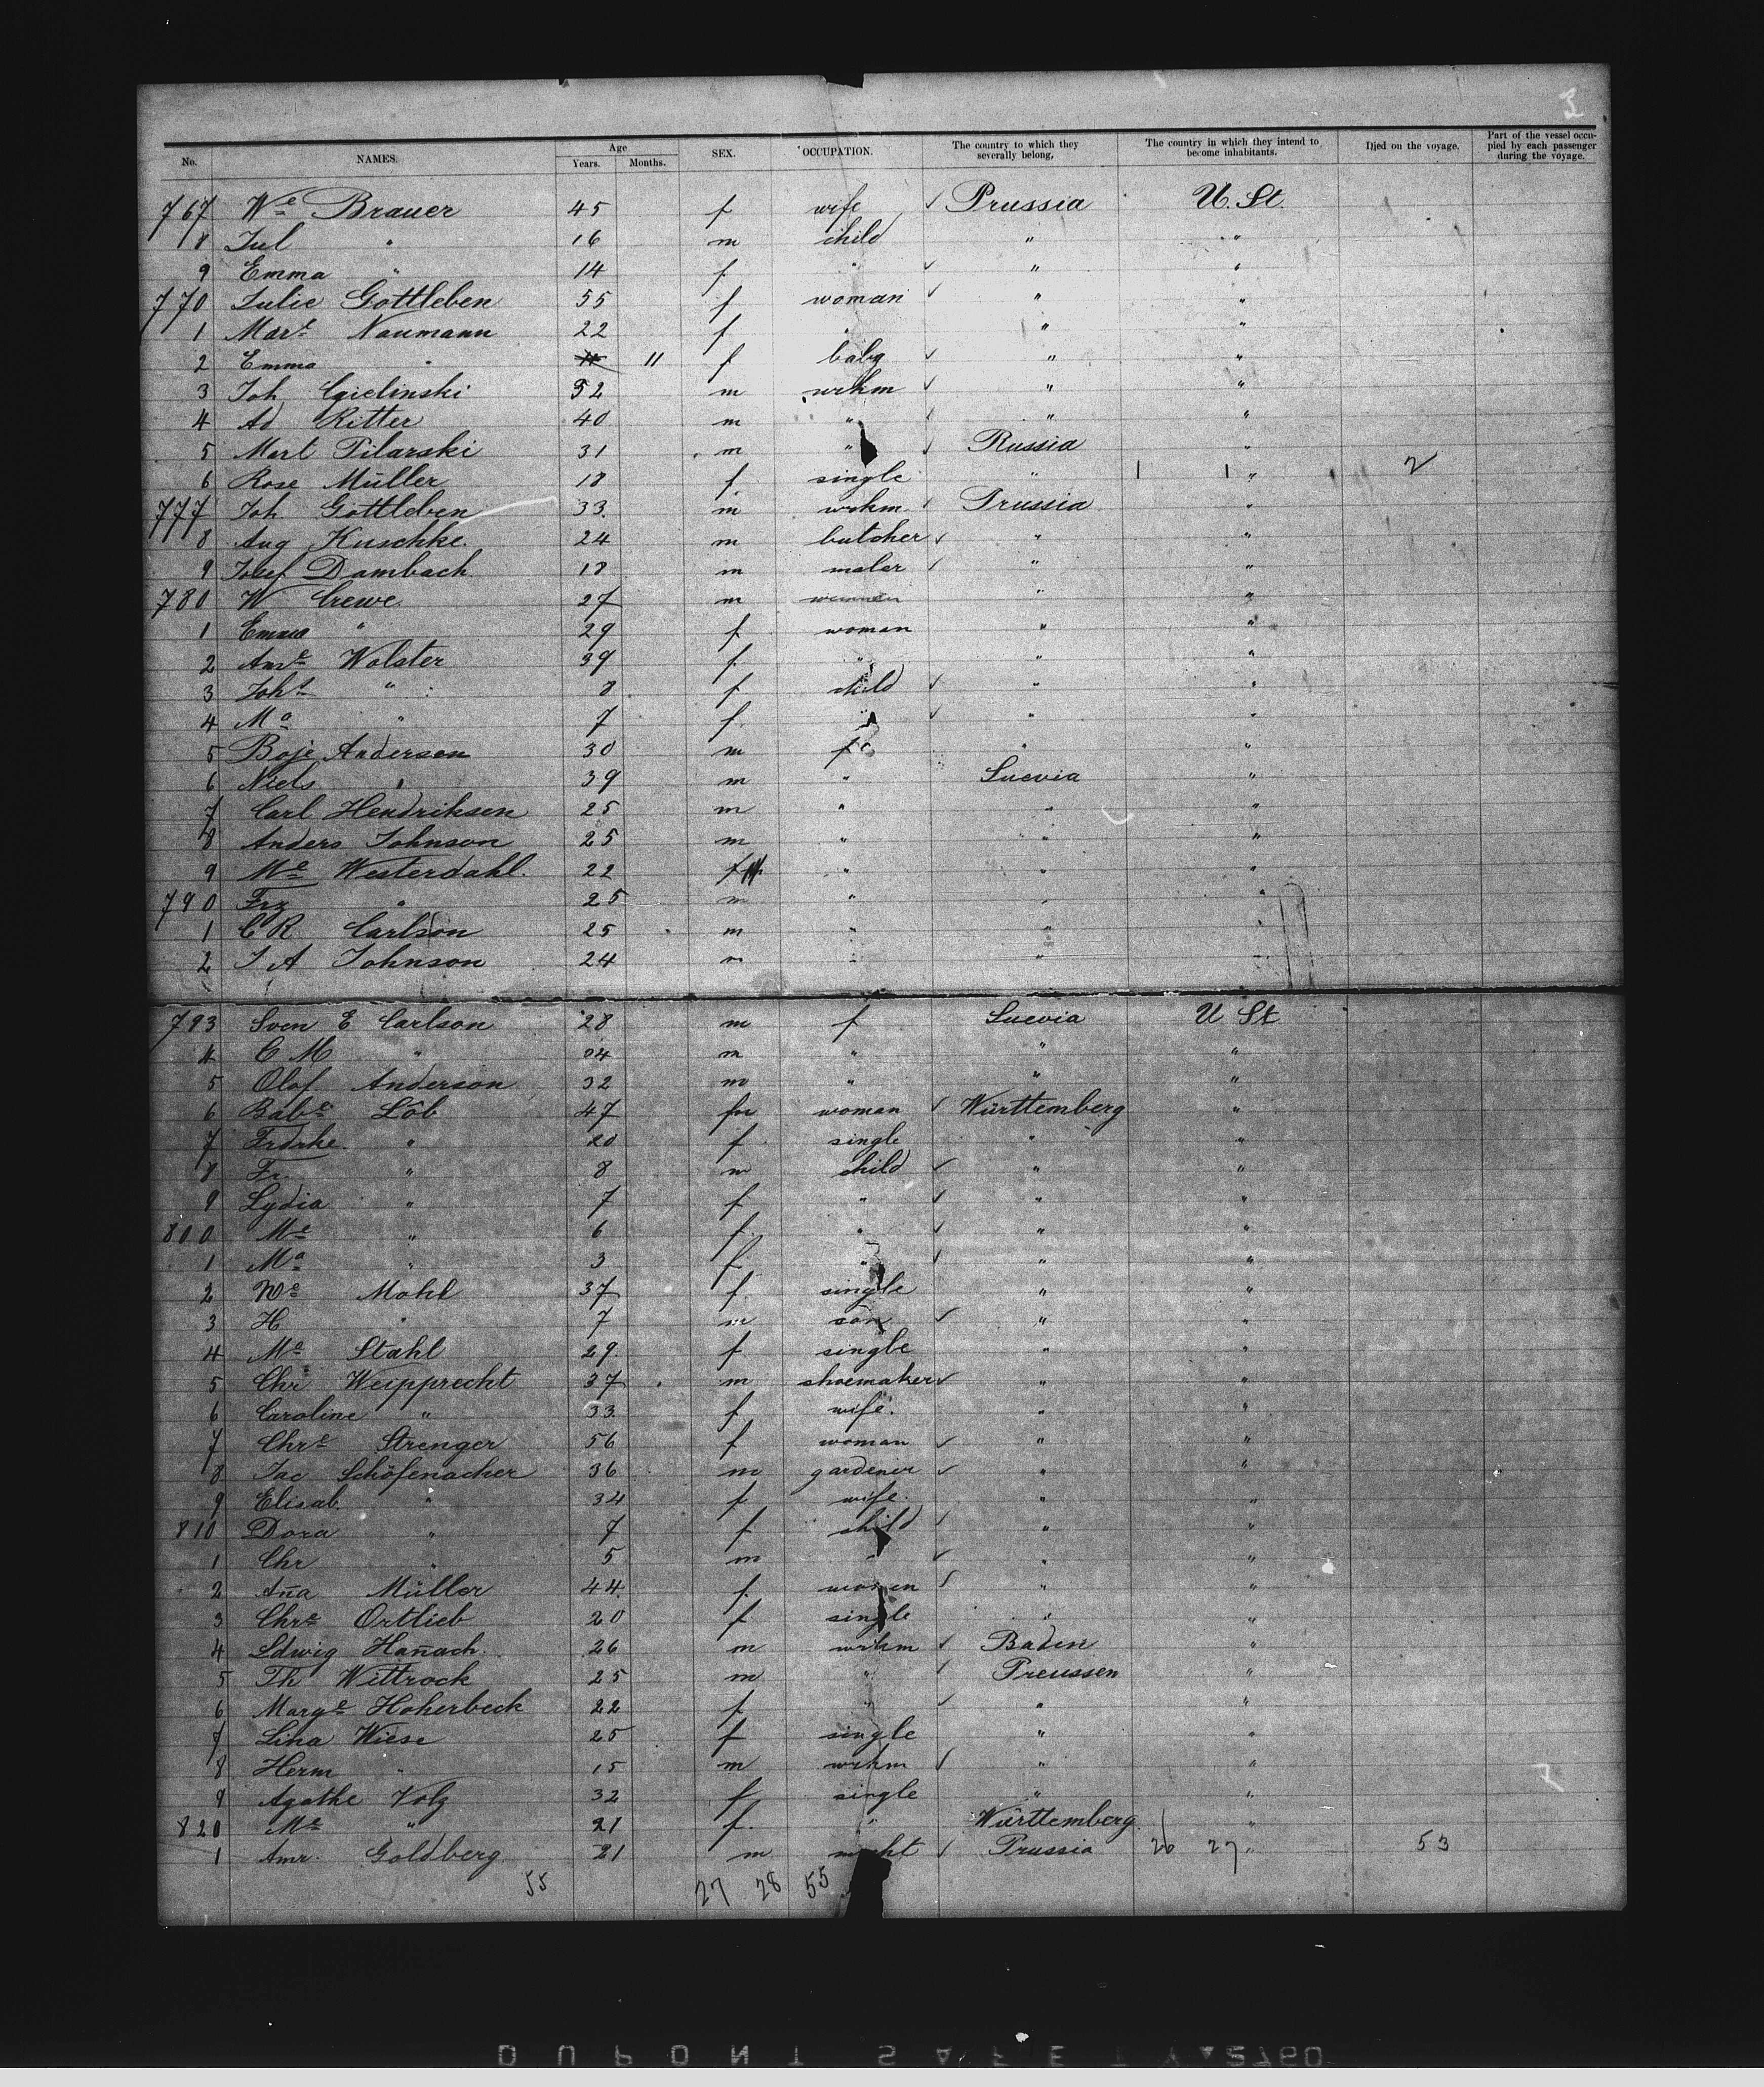 3
No. NAMES. Age Years. Months. SEX. OCCUPATION. The country to which they severally belong. The country in which they intend to become inhabitants. Died on the voyage. Part of the vessel occupied by each passenger during the voyage.
767 We Brauer 45 f wife ✓ Prussia U. St.
8 Jul " 16 m child " "
9 Emma " 14 f " ✓ " "
770 Julie Gottleben 55 f woman ✓ " "
1 Mare Naumann 22 f " " "
2 Emma " 11 f baby ✓ " "
3 Joh 52 m wrkm ✓ " "
4 Ad Ritter 40 m " ✓ " "
5 Mart Pilarski 31 m " ✓ Russia "
6 Rose Müller 18 f single " 1 1 " 2
777 Joh Gottleben 33 m wrkm ✓ Prussia "
8 Aug Kuschke 24 m butcher ✓ " "
9 Josef Dambach 18 m maler ✓ " "
780 W Crewe 27 m " "
1 Emma " 29 f woman " "
2 Ame Wolster 39 f " " "
3 Joh " 8 f child ✓ " "
4 Ma " 7 f " ✓ " "
5 Boje Andersen 30 m f " "
6 Niels " 39 m " Suevia "
7 Carl Hendriksen 25 m " " "
8 Anders Johnson 25 m " " "
9 Me Westerdahl 22 " " "
790 Frz " 25 m " " "
1 C R Carlson 25 m " " "
2 J A Johnson 24 m " " "
793 Sven E Carlson 28 m f Suevia U St
4 C M " 04 m " " "
5 Olof Anderson 32 m " " "
6 Babe Löb 47 woman ✓ Württemberg "
7 Frdrke " 20 f single " "
8 Fr. " 8 m child ✓ " "
9 Lydia " 7 f " ✓ " "
800 Me " 6 f " ✓ " "
1 Ma " 3 f " ✓ " "
2 We Mohl 37 f single " "
3 H " 7 m son ✓ " "
4 Me Stahl 29 f single " "
5 Chr Weipprecht 37 m shoemaker ✓ " "
6 Caroline " 33 f wife. " "
7 Chre Strenger 56 f woman ✓ " "
8 Jac Schöfenacher 36 m gardener ✓ " "
9 Elisab. " 34 f wife. " "
810 Dora " 7 f child ✓ " "
1 Chr " 5 m " ✓ " "
2 Ana Müller 44 f women ✓ " "
3 Chre Ortlieb 20 f single " "
4 Ldwig Hanach 26 m wrkm ✓ Baden "
5 Th Wittrock 25 m " ✓ Preussen "
6 Marge Hoherbeck 22 f " ✓ " "
7 Lina Wiese 25 f single " "
8 Herm " 15 m wrkm ✓ " "
9 Agathe Volz 32 f single " "
820 Me " 21 f " Württemberg "
1 Amr. Goldberg 21 m ✓ Prussia 26 27 " 53
55 27 28 55
DUPONT SAFETY 2760